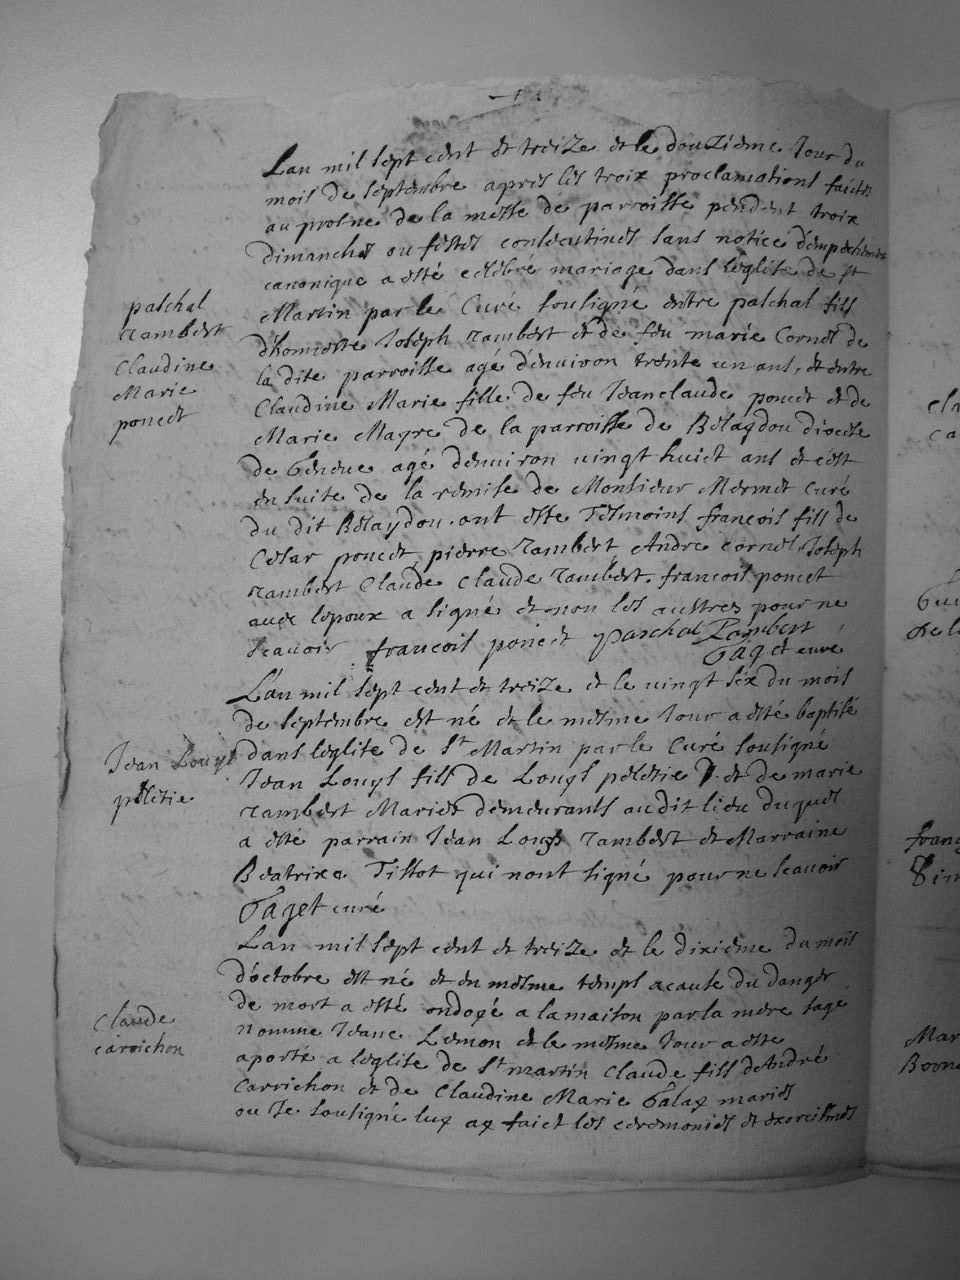 paschal
rambert
Claudine
Marie
poncet
Lan mil sept cent et treize et le douzieme Jour du
mois de septembre apres les troix proclamations faictes
au prosne de la messe de parroisse pendent troix
dimanches ou festes consecutives sans notice d'empechement
canonique a esté celebré mariage dans leglise de st
Martin par le Curé sousigné entre paschal fils
d'honneste Joseph rambert et de feu marie Cornet de
la dite parroisse agé denuiron trente un ans, et entre
Claudine Marie fille de feu Jeanclaude poncet et de
Marie Mayre de la parroisse de Belaydou diocese
de Geneue agé denuiron uingt huict ans et cest
en suite de la remise de Monsieur Mermet curé
du dit Belaydou. ont este Tesmoins francois fils de
Cesar poncet, pierre rambert Andre cornet Joseph
rambert Claude Claude rambert. francois poncet
auec lepoux a signé et non les austres pour ne
scauoir francois poncet paschal Rambert
Gaget curé
Jean Louys
peletie
L'an mil sept cent et treize et le uingt six du mois
de septembre est né et le mesme Jour a esté baptisé
dans leglise de St Martin par le Curé sousigné
Jean Louys fils de Louys peletie et de marie
rambert Mariés demeurants audit lieu duquel
a esté parrain Jean Louys rambert et Marraine
Beatrixe Tissot qui nont signé pour ne scauoir
Gaget curé
Claude
carrichon
Lan mil sept cent et treize et le dixieme du mois
d'octobre est né et en mesme temps a cause du danger
de mort a esté ondoyé a la maison par la mere sage
nomme Jeane Lemon et le mesme Jour a este
aporté a leglise de St martin Claude fils de André
Carrichon et de Claudine Marie Galay mariés
ou Je sousigné luy ay faict les ceremonies et exorcismes